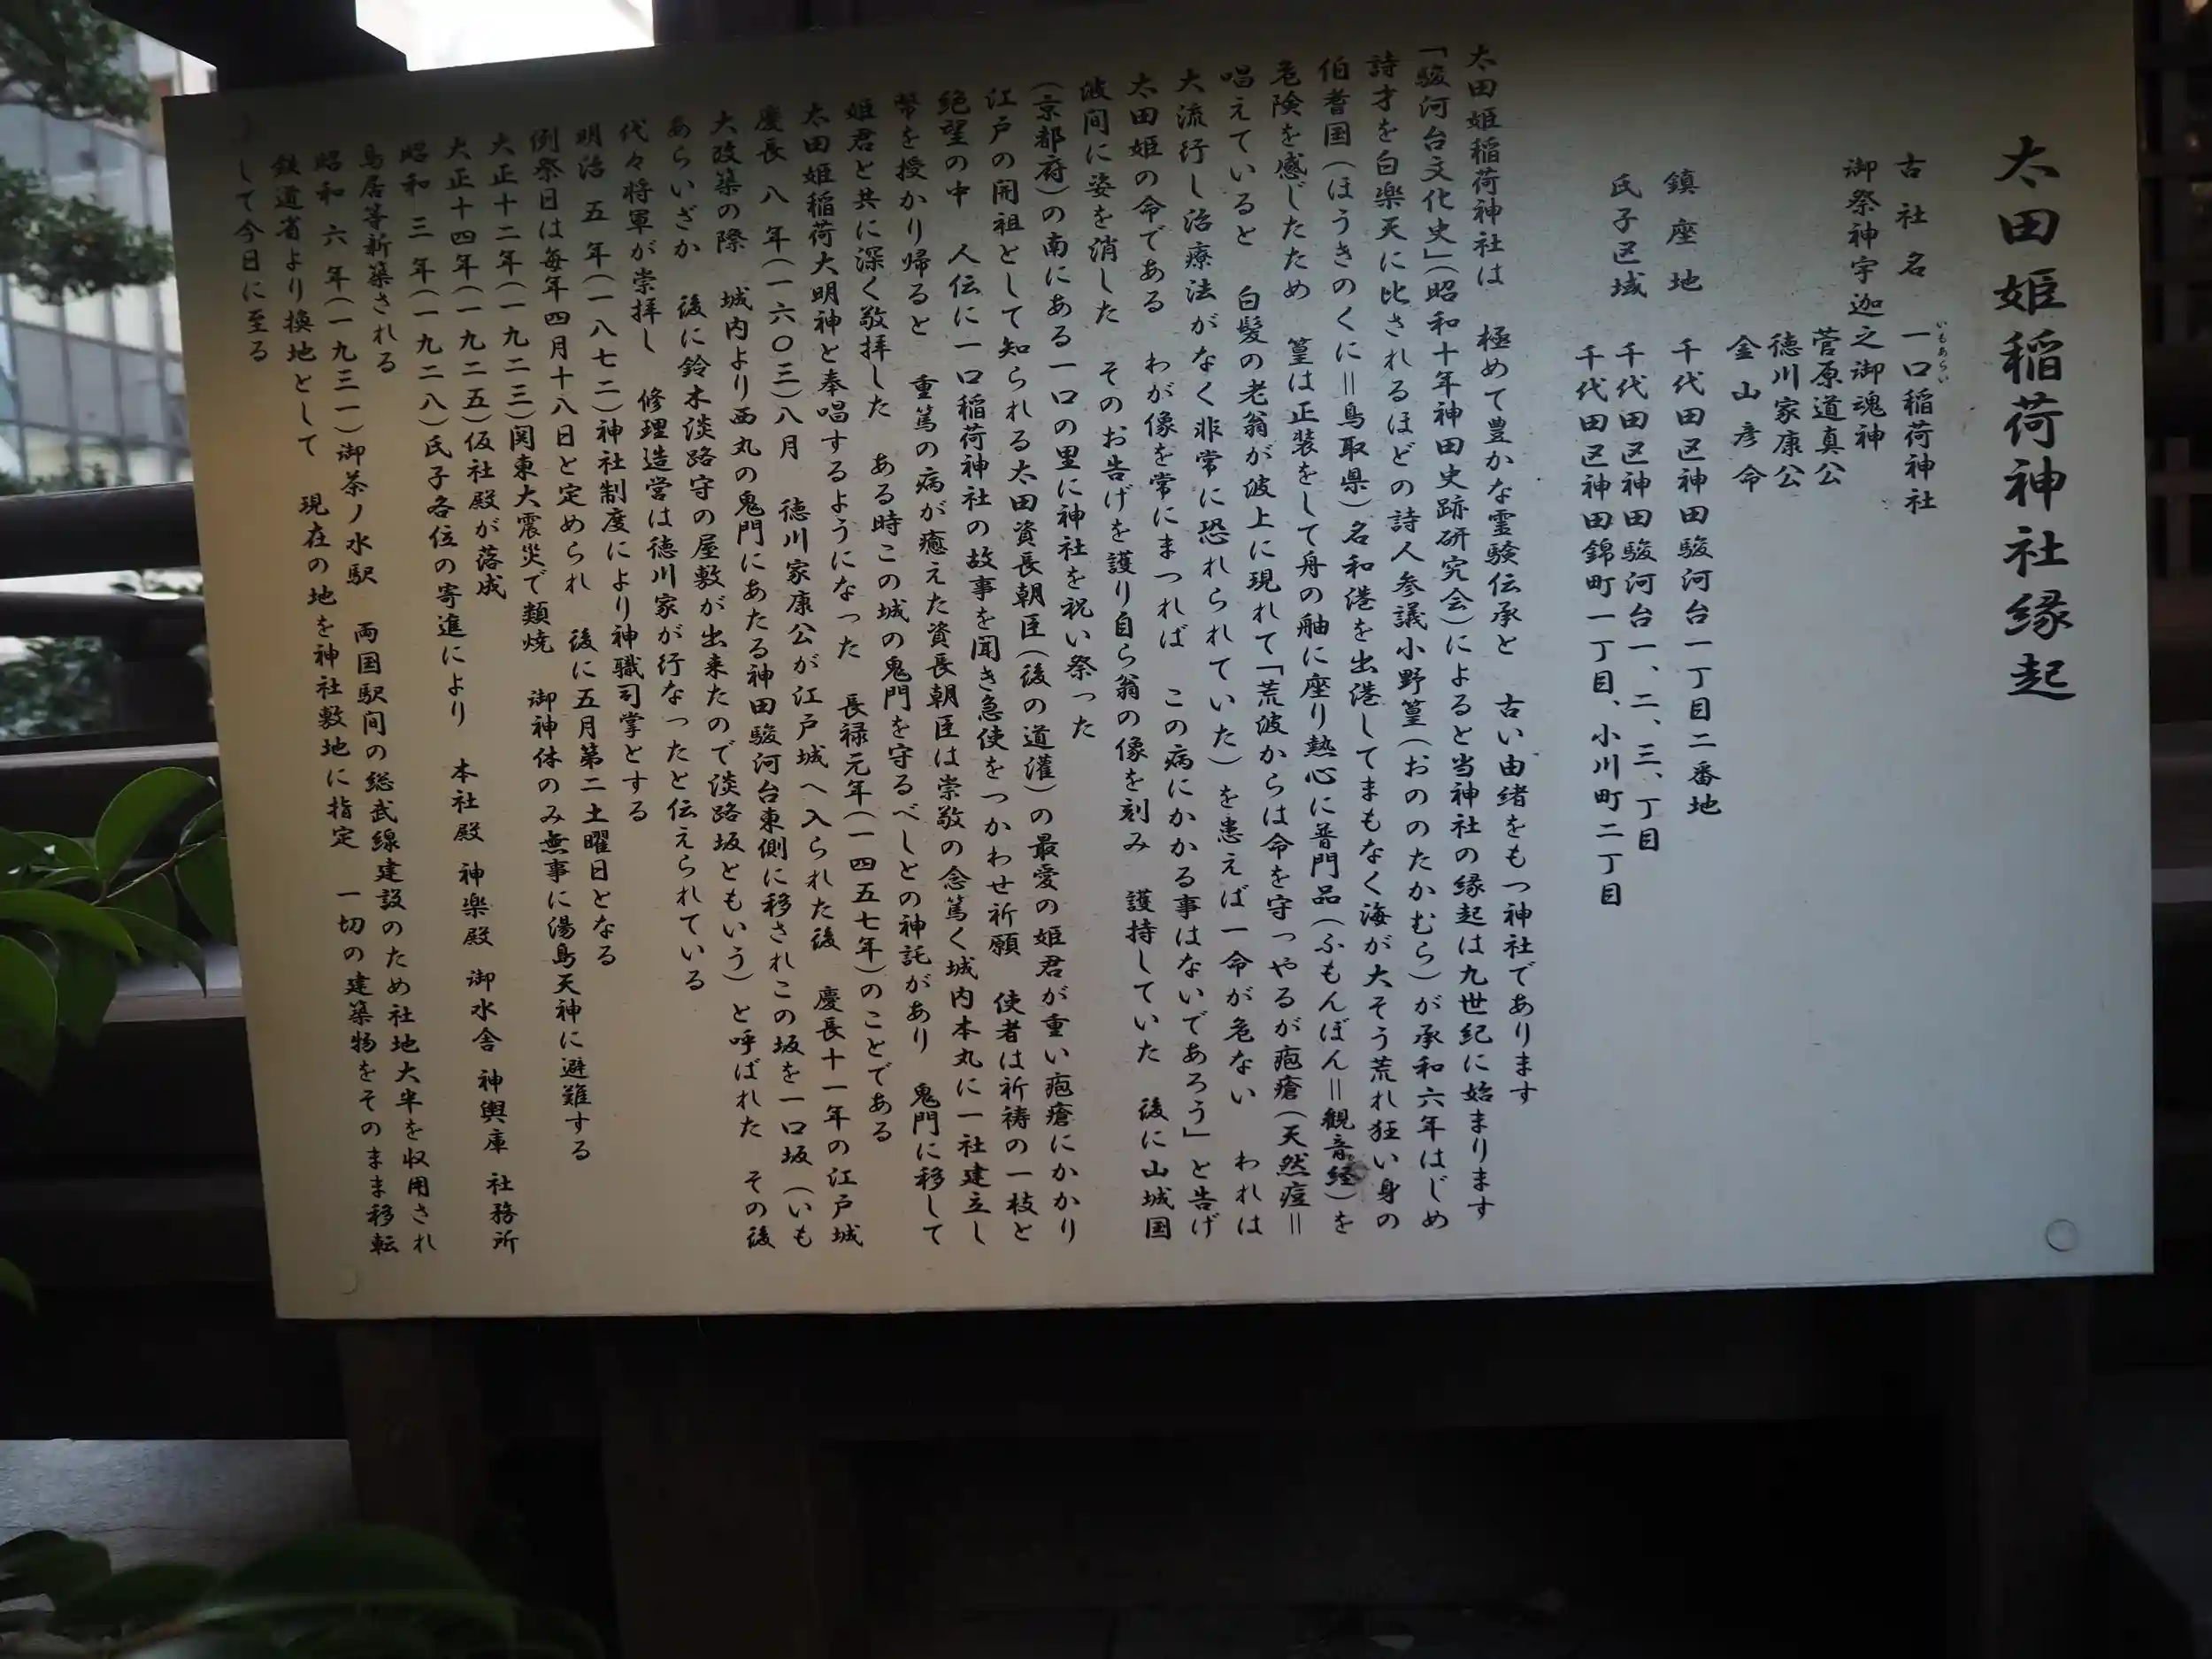 太田姫稲荷神社縁起
古社名 一口稲荷神社
いもあらい
御祭神 宇迦之御魂神
菅原道真公
徳川家康公
金山彦命
鎮座地 千代田区神田駿河台一丁目二番地
氏子区域 千代田区神田駿河台一、二、三、丁目
千代田区神田錦町一丁目、小川町二丁目
太田姫稲荷神社は 極めて豊かな霊験伝承と 古い由緒をもつ神社であります
「駿河台文化史」(昭和十年神田史跡研究会)によると当神社の縁起は九世紀に始まります
詩才を白楽天に比されるほどの詩人参議小野篁(おののたかむら)が承和六年はじめ
伯耆国(ほうきのくに=鳥取県)名和港を出港してまもなく海が大そう荒れ狂い身の
危険を感じたため 篁は正装をして舟の舳に座り熱心に普門品(ふもんぼん=観音経)を
唱えていると 白髪の老翁が波上に現れて「荒波からは命を守ってやるが疱瘡(天然痘=
大流行し治療法がなく非常に恐れられていた)を患えば一命が危ない われは
太田姫の命である わが像を常にまつれば この病にかかる事はないであろう」と告げ
波間に姿を消した そのお告げを護り自ら翁の像を刻み 護持していた 後に山城国
(京都府)の南にある一口の里に神社を祝い祭った
江戸の開祖として知られる太田資長朝臣(後の道灌)の最愛の姫君が重い疱瘡にかかり
絶望の中 人伝に一口稲荷神社の故事を聞き急使をつかわせ祈願 使者は祈祷の一枝と
幣を授かり帰ると 重篤の病が癒えた資長朝臣は崇敬の念篤く城内本丸に一社建立し
姫君と共に深く敬拝した ある時この城の鬼門を守るべしとの神託があり 鬼門に移して
太田姫稲荷大明神と奉唱するようになった 長禄元年(一四五七年)のことである
慶長 八 年(一六〇三)八月 徳川家康公が江戸城へ入られた後 慶長十一年の江戸城
大改築の際 城内より西丸の鬼門にあたる神田駿河台東側に移されこの坂を一口坂(いも
あらいざか 後に鈴木淡路守の屋敷が出来たので淡路坂ともいう)と呼ばれた その後
代々将軍が崇拝し 修理造営は徳川家が行なったと伝えられている
明治 五 年(一八七二)神社制度により神職司掌とする
例祭日は毎年四月十八日と定められ 後に五月第二土曜日となる
大正十二年(一九二三)関東大震災で類焼 御神体のみ無事に湯島天神に避難する
大正十四年(一九二五)仮社殿が落成
昭和 三 年(一九二八)氏子各位の寄進により 本社殿 神楽殿 御水舎 神輿庫 社務所
鳥居等新築される
昭和 六 年(一九三一)御茶ノ水駅 両国駅間の総武線建設のため社地大半を収用され
鉄道省より換地として 現在の地を神社敷地に指定 一切の建築物をそのまま移転
して今日に至る